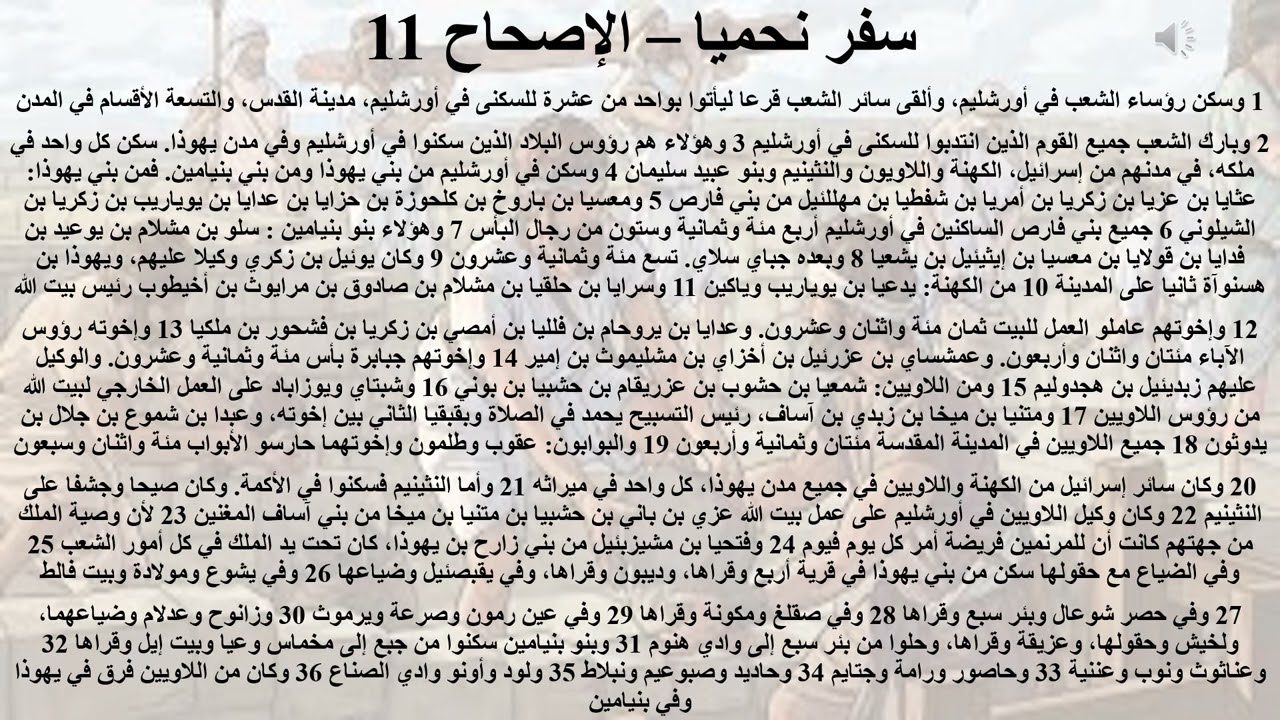 سفر نحميا – الإصحاح 11
1 وسكن رؤساء الشعب في أورشليم، وألقى سائر الشعب قرعا ليأتوا بواحد من عشرة للسكنى في أورشليم، مدينة القدس، والتسعة الأقسام في المدن
2 وبارك الشعب جميع القوم الذين انتدبوا للسكنى في أورشليم 3 وهؤلاء هم رؤوس البلاد الذين سكنوا في أورشليم وفي مدن يهوذا. سكن كل واحد في
ملكه، في مدنهم من إسرائيل، الكهنة واللاويون والنثينيم وبنو عبيد سليمان 4 وسكن في أورشليم من بني يهوذا ومن بني بنيامين. فمن بني يهوذا:
عثايا بن عزيا بن زكريا بن أمريا بن شفطيا بن مهللئيل من بني فارص 5 ومعسيا بن باروخ بن كلحوزة بن حزايا بن عدايا بن يوياريب بن زكريا بن
الشيلوني 6 جميع بني فارص الساكنين في أورشليم أربع مئة وثمانية وستون من رجال البأس 7 وهؤلاء بنو بنيامين : سلو بن مشلام بن يوعيد بن
فدايا بن قولايا بن معسيا بن إيثيئيل بن يشعيا 8 وبعده جباي سلاي. تسع مئة وثمانية وعشرون 9 وكان يوئيل بن زكري وكيلا عليهم، ويهوذا بن
هسنوآة ثانيا على المدينة 10 من الكهنة: يدعيا بن يوياريب وياكين 11 وسرايا بن حلقيا بن مشلام بن صادوق بن مرايوث بن أخيطوب رئيس بيت الله
12 وإخوتهم عاملو العمل للبيت ثمان مئة واثنان وعشرون. وعدايا بن يروحام بن فلليا بن أمصي بن زكريا بن فشحور بن ملكيا 13 وإخوته رؤوس
الآباء مئتان واثنان وأربعون. وعمشساي بن عزرئيل بن أخزاي بن مشليموث بن إمير 14 وإخوتهم جبابرة بأس مئة وثمانية وعشرون. والوكيل
عليهم زبديئيل بن هجدوليم 15 ومن اللاويين: شمعيا بن حشوب بن عزريقام بن حشبيا بن بوني 16 وشبتاي ويوزاباد على العمل الخارجي لبيت الله
من رؤوس اللاويين 17 ومتنيا بن ميخا بن زبدي بن آساف، رئيس التسبيح يحمد في الصلاة وبقبقيا الثاني بين إخوته، وعبدا بن شموع بن جلال بن
يدوثون 18 جميع اللاويين في المدينة المقدسة مئتان وثمانية وأربعون 19 والبوابون: عقوب وطلمون وإخوتهما حارسو الأبواب مئة واثنان وسبعون
20 وكان سائر إسرائيل من الكهنة واللاويين في جميع مدن يهوذا، كل واحد في ميراثه 21 وأما النثينيم فسكنوا في الأكمة. وكان صيحا وجشفا على
النثينيم 22 وكان وكيل اللاويين في أورشليم على عمل بيت الله عزي بن باني بن حشبيا بن متنيا بن ميخا من بني آساف المغنين 23 لأن وصية الملك
من جهتهم كانت أن للمرنمين فريضة أمر كل يوم فيوم 24 وفتحيا بن مشيزبئيل من بني زارح بن يهوذا، كان تحت يد الملك في كل أمور الشعب 25
وفي الضياع مع حقولها سكن من بني يهوذا في قرية أربع وقراها، وديبون وقراها، وفي يقبصئيل وضياعها 26 وفي يشوع ومولادة وبيت فالط
27 وفي حصر شوعال وبئر سبع وقراها 28 وفي صقلغ ومكونة وقراها 29 وفي عين رمون وصرعة ويرموث 30 وزانوح وعدلام وضياعهما،
ولخيش وحقولها، وعزيقة وقراها، وحلوا من بئر سبع إلى وادي هنوم 31 وبنو بنيامين سكنوا من جبع إلى مخماس وعيا وبيت إيل وقراها 32
وعناثوث ونوب وعننية 33 وحاصور ورامة وجتايم 34 وحاديد وصبوعيم ونبلاط 35 ولود وأونو وادي الصناع 36 وكان من اللاويين فرق في يهوذا
وفي بنيامين